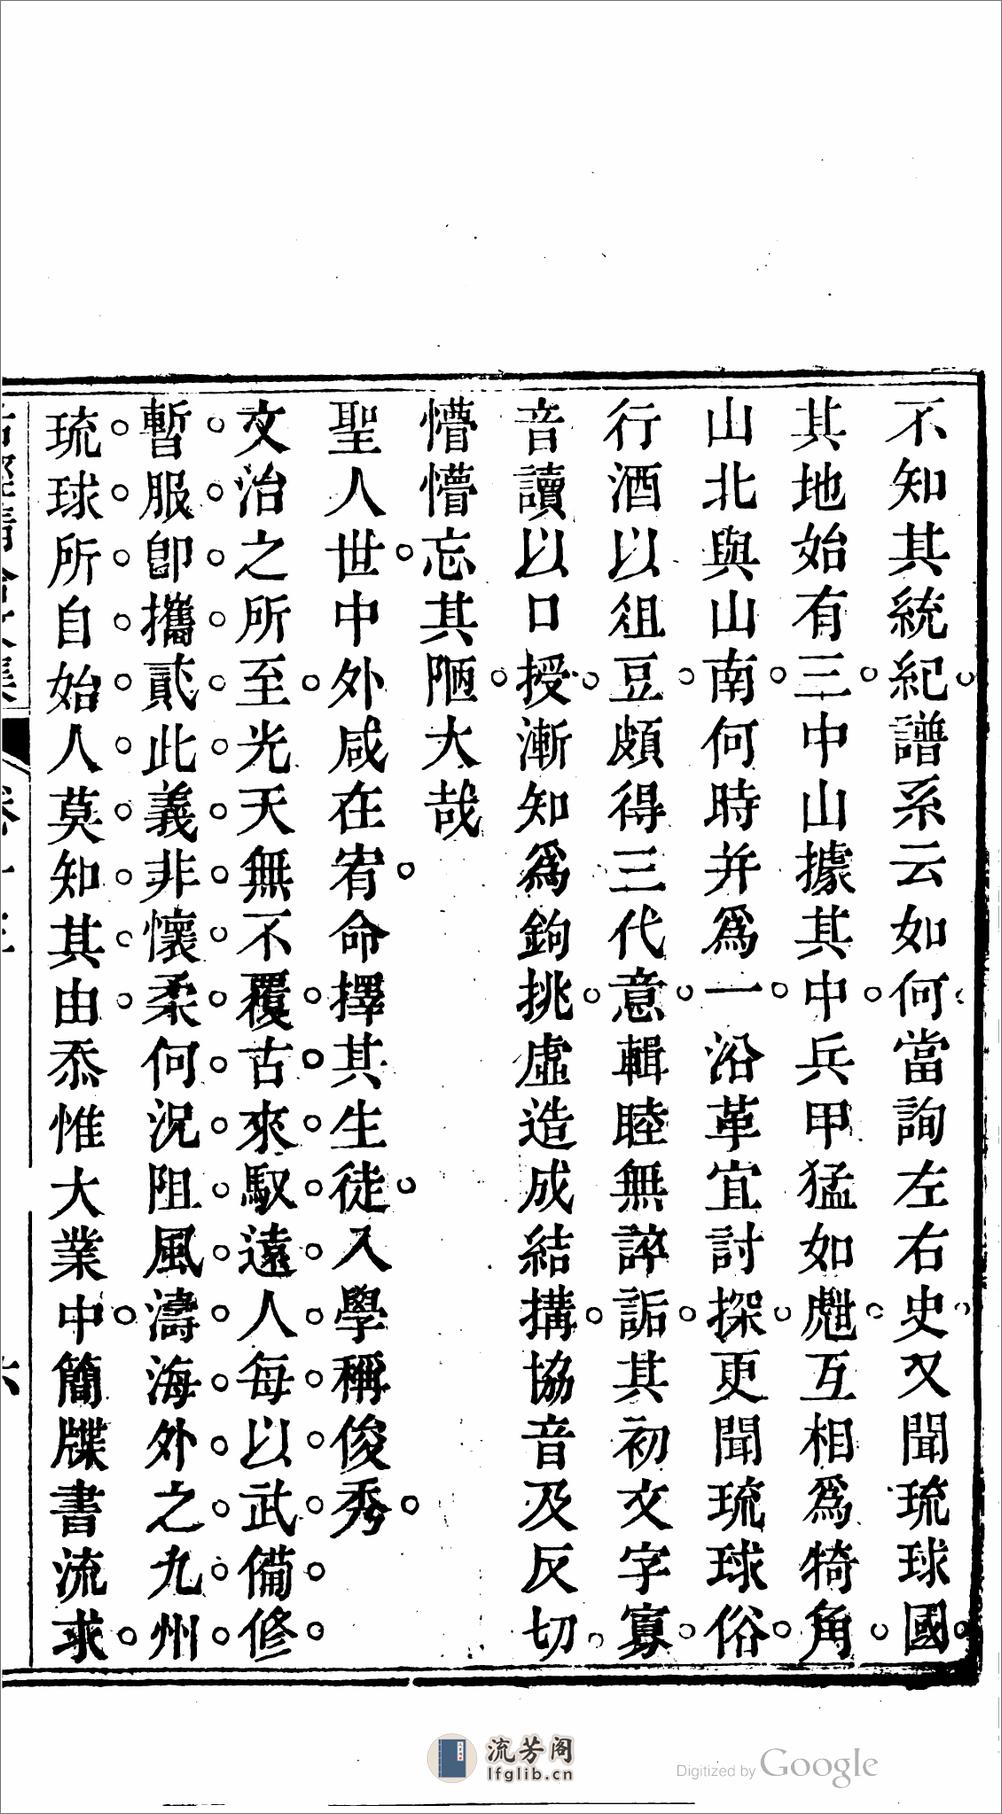 不知其統紀譜系云如何當詢左右史又聞琉球國
其地始有三中山據其中兵甲猛如彪互相爲犄角
山北與山南何時并爲一沿革宜討探更聞琉球俗
行酒以俎豆頗得三代意輯睦無誶詬其初文字寡
音讀以口授漸知爲鉤挑虛造成結搆協音及反切
懵懵忘其陋大哉
聖人世中外咸在宥命擇其生徒入學稱俊秀
文治之所至光天無不覆古來馭遠人每以武備修
暫服卽攜貳此義非懷柔何況阻風濤海外之九州
琉球所自始人莫知其由忝惟大業中簡牒書流求
六
流芳阁
lfglib.cn
Digitized by Google